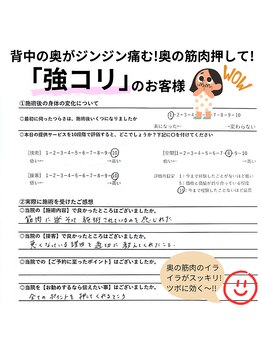 背中の奥がジンジン痛む!奥の筋肉押して!
「強コリ」のお客様
WOW
①施術後の身体の変化について
●最初に伺ったつらさは、施術後いくつになりましたか
1-2-3-4-5-6-7-8-9-10
楽になった〜 →変わらない
●本日の提供サービスを10段階で評価すると、どこでしょうか？下記に○を付けてください
[技術] 1-2-3-4-5-6-7-8-9-10
[空間] 1-2-3-4-5-6-7-8-9-10
[接客] 1-2-3-4-5-6-7-8-9-10
②実際に施術を受けたご感想
○当院の【施術内容】で良かったところはございましたか。
筋肉に
施術されているのを感じれた
○当院の【接客】で良かったところはございましたか。
悪くなっている理由を
教えてくれたこと
○当院でのご【予約に至ったポイント】はございましたか。
○当院を【お勧めするなら伝えたい事】はございましたか。
全てのポイントを押してくれるところ
奥の筋肉のイラ
イラがスッキリ!
ツボに効く〜!!